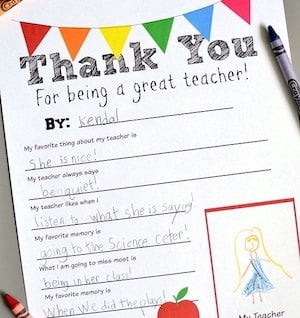 Thank You
For being a great teacher!
By: Kendal
My favorite thing about my teacher is
She is nice!
My teacher always says
be quiet!
My teacher likes when I
listen to what she is saying!
My favorite memory is
going to the Science ceter!
What I am going to miss most is
being in her class!
My favorite memory is
When We did the play!
My Teacher